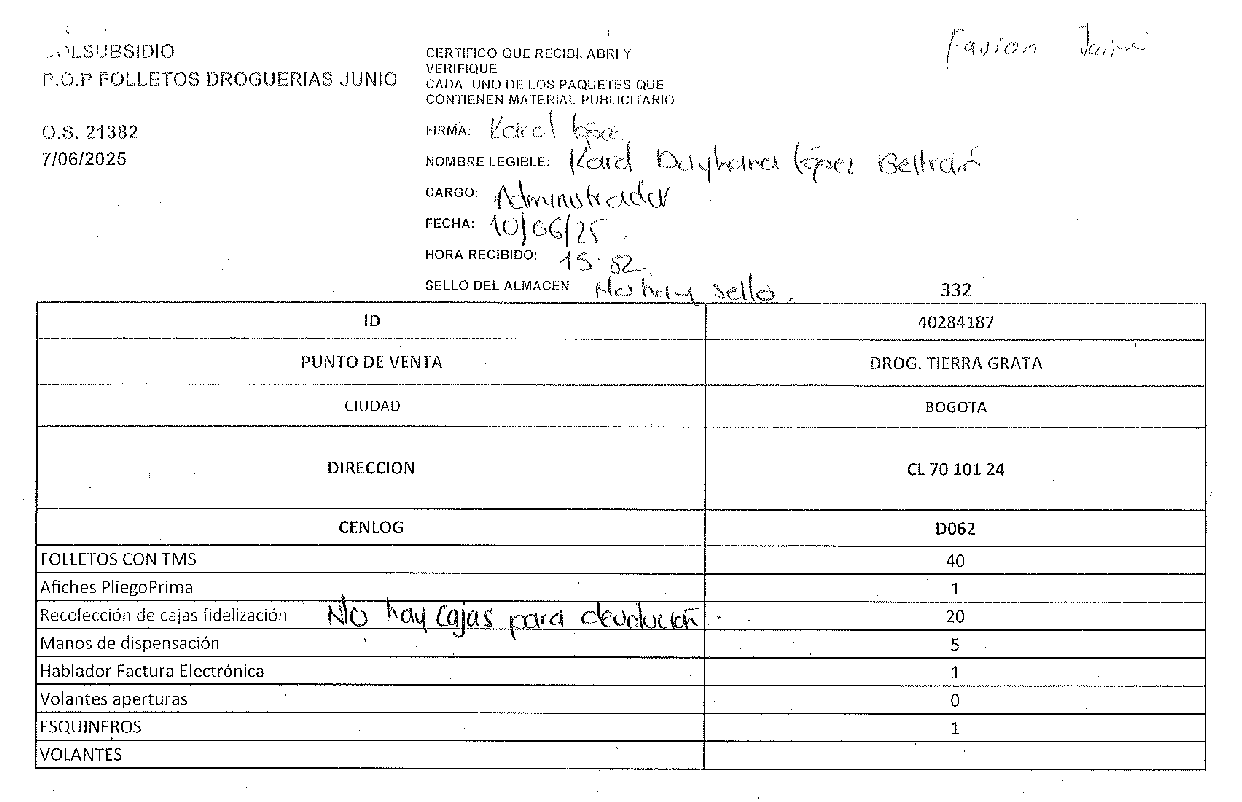 COLSUBSIDIO
P.O.P FOLLETOS DROGUERIAS JUNIO
O.S. 21382
7/06/2025
CERTIFICO QUE RECIBI, ABRI Y
VERIFIQUE
CADA UNO DE LOS PAQUETES QUE
CONTIENEN MATERIAL PUBLICITARIO
FIRMA: Karol López
NOMBRE LEGIBLE: Karol Dayhana López Beltrán
CARGO: Administrador
FECHA: 10/06/25
HORA RECIBIDO: 15:52
SELLO DEL ALMACEN No hay sello.
332
ID 40284187
PUNTO DE VENTA DROG. TIERRA GRATA
CIUDAD BOGOTA
DIRECCION CL 70 101 24
CENLOG D062
FOLLETOS CON TMS 40
Afiches PliegoPrima 1
Recolección de cajas fidelización No hay cajas para devolución 20
Manos de dispensación 5
Hablador Factura Electrónica 1
Volantes aperturas 0
ESQUINEROS 1
VOLANTES